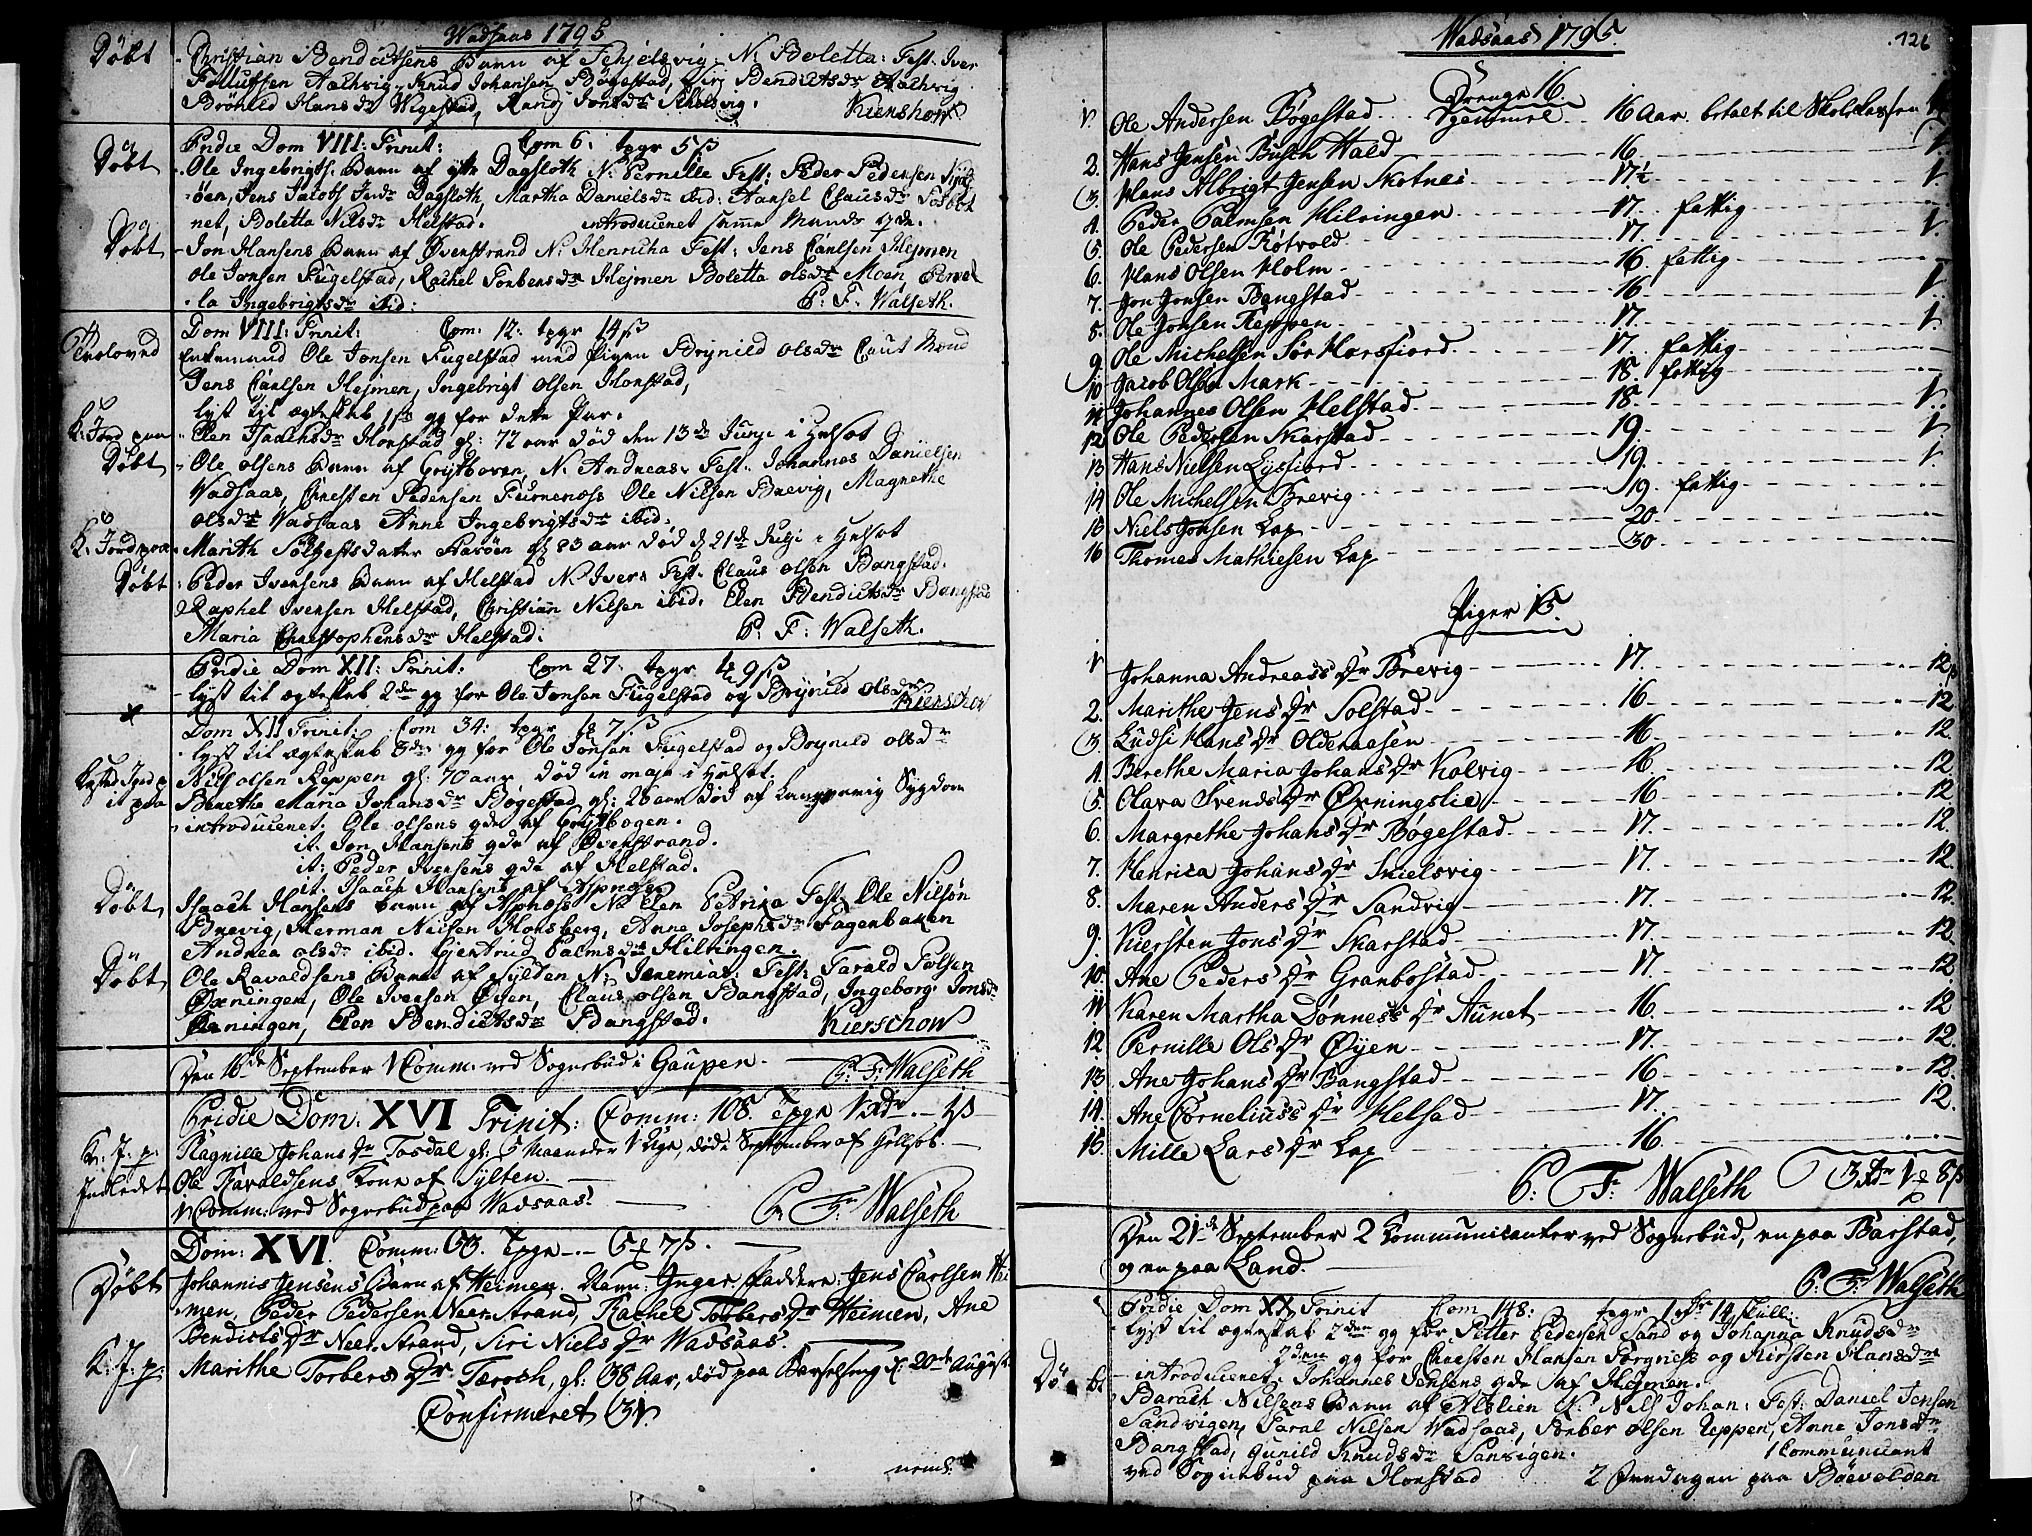 Wadsaas 1795
Døbt Christian Bendictsens Barn af Schjelsvig. N: Boletta: Fest. Iver
Aalhvig. Knud Johansen Bøgestad, Siri Bendictsdr Aalhvig
Brønild Hansdr Wigestad, Randj Jonsdr
Kierschow
Pridie Dom VIII: Trinit: Com 6. tpgr 5 ß
Døbt Ole Ingebrigts. Barn af ytr Dagsloth N: Pernille Fest: Peder Pedersen
øen, Jens Jacobs Dagsloth, Martha Danielsdr ibid: Claus dr
net, Boletta Nilsdr Helstad. introduceret samme Mands qde.
Døbt Jon Hansens Barn af Øvenstrand N: Henricha Fest: Jens Carlsen Hejmen
Ole Jonsen Fugelstad, Rachel Torbensdr Hejmen Boletta olsdr Moen
la Ingebrigtsdr ibid: P: F: Walseth.
Dom VIII: Trinit: Com: 12. tpgr 14 ß
Trolowed Enkemand Ole Jonsen Fugelstad med Pigen Brynild olsdr
Jens Carlsen Hejmen, Ingebrigt olsen Horstad,
lyst til ægteskab 1ste gg for dette Par.
K: Jord paa Elen Isachsdr Horstad gl: 72 aar død den 13de Junj
Døbt Ole olsens Barn af Grytbogen, N: Andreas. Fest: Johannes Danielsen
Wadsaas, Christen Pedersen Ole Nilsen Brevig, Magrethe
olsdr Wadsaas Anne Ingebrigtsdr ibid.
K. Jord paa Marith datter gl 83 aar død d 21de Julji
Døbt Peder Ivensens Barn af Helstad N: Iver: Fest. Claus olsen Bangstad.
Raphel Ivensen Helstad, Christian Nilsen ibid. Elen Bendictsdr Bangstad
Maria Christophersdr Helstad: P: F: Walseth.
Pridie Dom XII: Trinit. Com 27. tpgr 9 ß
lyst til ægteskab 2den gg for Ole Jonsen Fugelstad og Brynild olsdr
Kierschow
Dom XII Trinit. Com 34: tpgr 7 ß
lyst til ægteskab 3die gg for Ole Jonsen Fugelstad og Brynild olsdr
Nils olsen Reppen gl: 70 aar død
Berethe Maria Johansdr Bøgestad gl: 28 aar død af Langvarig Sygdom
introduceret. Ole olsens qde af Grytbogen.
it. Jon Hansens qde af Øvenstrand.
it: Peder Ivensens qde af Helstad.
it. Isaach Hansens af Aspnæss
Døbt Isaach Hansens Barn af Aspnæss N: Elen Petrina Fest: Ole Nilsøn
Brevig, Herman Horsberg, Anne Josephsdr Fagerbaken
Andrea olsdr ibid. Gjertrud Palmsdr Hilringen.
Døbt Ole Ravaldsens Barn af Sylten N: Jeremias: Fest: Farald
Øxningen, Ole Ivensen Øyen, Claus olsen Bangstad, Ingeborg Jonsdr
Øxningen, Elen Bendictsdr Bangstad.
Kierschow
Den 16de September 1 Comm: ved Sognebud i Gaupen.
P: F: Walseth
Pridie Dom. XVI Trinit: Comm: 108. Tpgr 1 Rdr
K: J: p: Ragnille Johans Dr Tosdal gl: 5 Maaneder 1 Uge, død September
Indledet Ole Ravaldsens Kone af Sylten.
1 Comm: ved Sognebud paa Wadsaas.
P: Fr: Walseth
Dom: XVI. Comm: 63. Tpgr 5 7 ß.
Døbt Johannis Jensens Barn af Heimen. Navn: Inger. Faddere: Jens Carlsen Hei
men, Peder Pedersen Neer Strand, Rachel Torbers Dr Heimen, Ane
Bendicts Dr Neer Strand, Siri Niels Dr Wadsaas.
K: J: p: Marithe Torbers Dr gl: 38 Aar, død paa Barselseng d: 20de August
Confirmeret 31
Wadsaas 1795.
126
Drenge 16.
1. Ole Andersen Bøgestad 16 Aar betalt til
2. Hans Jensen Busch Hald 16 1.
3. Hans Albrigt Jensen Skotnes 17½ 1.
4. Peder Palmsen Hilringen 17. fattig
5. Ole Pedersen Røtvold 17. 1.
6. Hans Olsen Holm 16 fattig
7. Jon Jonsen Bangstad 16. 1
8. Ole Jonsen Reppen 17. 1.
9. Ole Michelsen Sør Horsfiord 17. fattig
10 Jacob Olsen Mark 18 fattig
11 Johannes Olsen Helstad 18. 1.
12 Ole Pedersen Skarstad 19. 1
13 Hans Nielsen Lysfiord 19. 1.
14 Ole Michelsen Brevig 19. fattig
15 Niels Jonsen Lap 20.
16 Thomes Mathiesen Lap 30
Piger 15.
1 Johanna Andreass Dr Brevig 17. 12 ß
2. Marithe Jens Dr Solstad 16 12
3. Ludsi Hans Dr Oldernesen 16. 12.
4. Berethe Maria Johans Dr Kolvig 16. 12
5. Olava Svends Dr Øxningslie 16 12
6. Margrethe Johans Dr Bøgestad 17. 12.
7. Henrica Johans Dr Smielsvig 17. 12
8. Maren Anders Dr Sandvig 17. 12.
9. Kiersten Jons Dr Skarstad 17. 12
10. Ane Peders Dr Granbostad 17. 12
11 Karen Martha Dønness Dr Aunet 16. 12
12 Pernille Ols Dr Øyen 17. 12.
13 Ane Johans Dr Bangstad 16 12.
14. Ane Corneliuss Dr Helsad 17. 12.
15. Mille Lars Dr Lap 16.
P: Fr: Walseth 3 Rdr 1 8 ß
Den 21de September 2 Kommunicanter ved Sognebud, en paa Barstad,
og en paa Land.
P: Fr: Walseth
Pridie Dom XX Trinit Com 148: tpgr 1 14 skill:
lyst til ægteskab 2den gg for Petter Pedersen Sand og Johanna Knudsdr
2den gg for Christen Hansen Torgness og Kirsten Hansdr
introduceret. Johannes Jensens qde af Hejmen.
Døbt Barach Nilsens Barn af Alslien N: Nils Johan: Fest: Daniel Jensen
Sandvigen, Nilsen Wadsaas, Torber olsen Reppen, Anne Jonsdr
Bangstad, Gunild Knudsdr Sanvigen. 1 Communicant
ved Sognebud paa Horstad 2